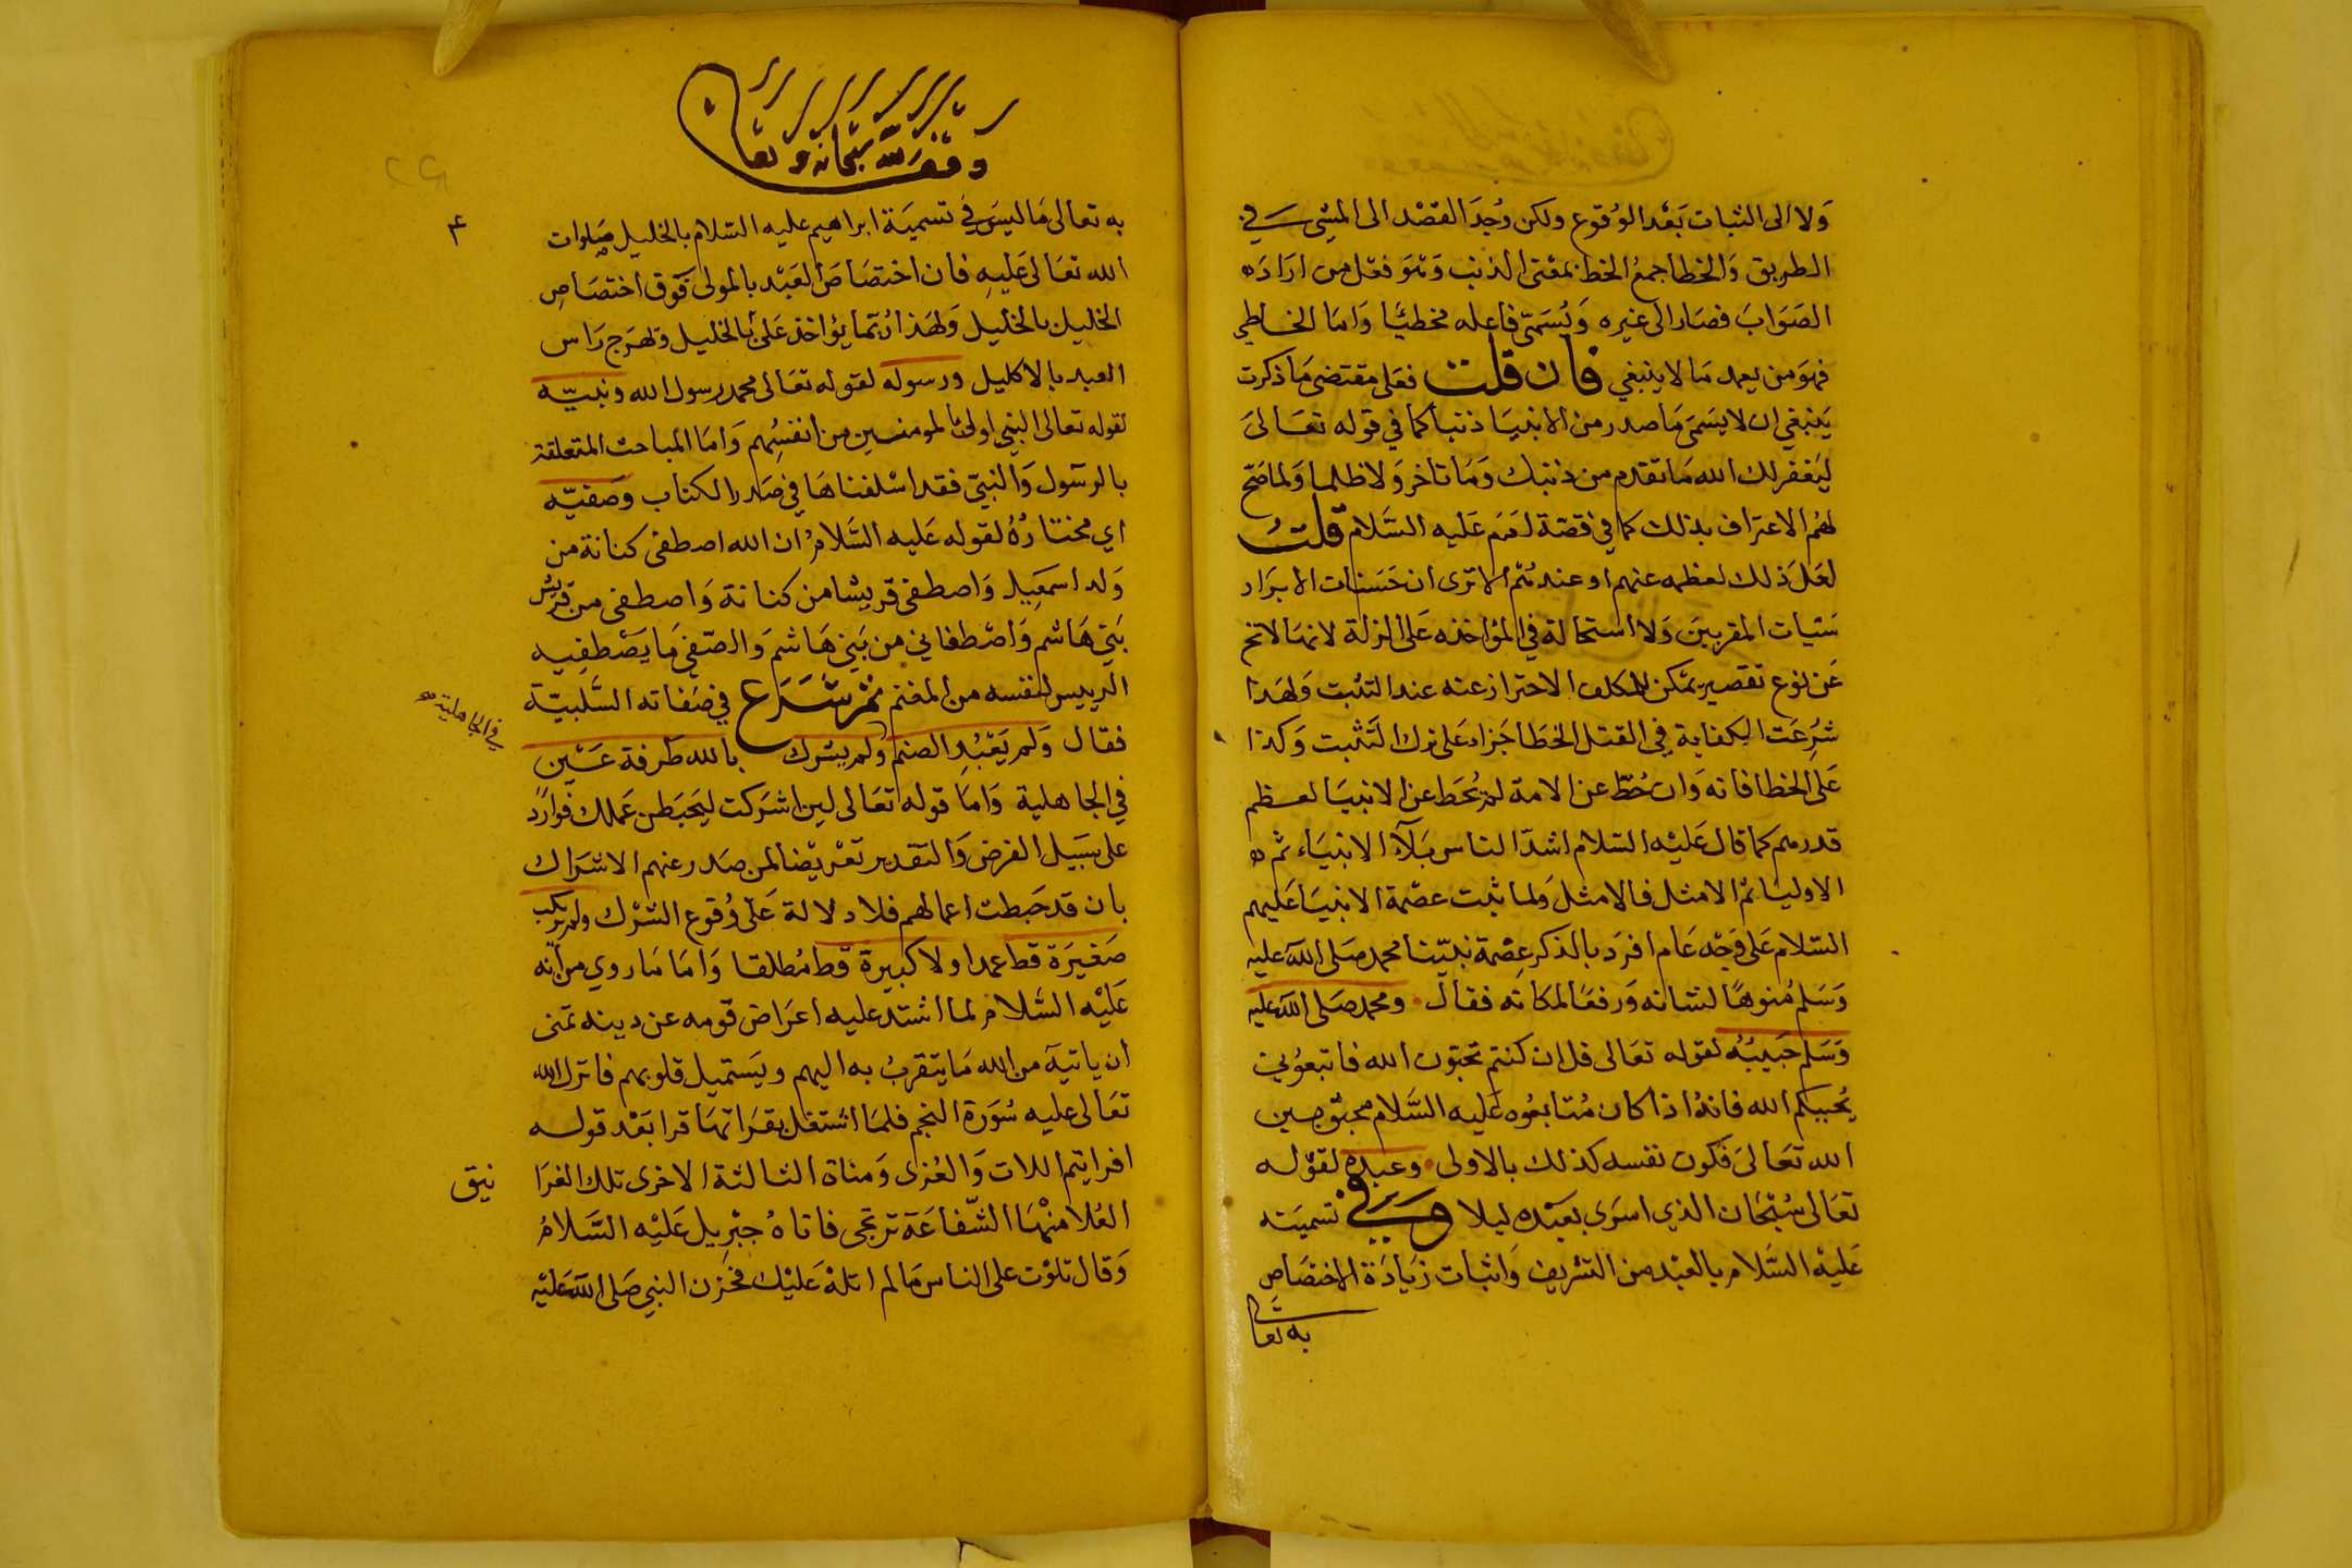 ولا الى الثبات بعد الوقوع ولكن وجد القصد الى المشي في
الطريق والخطا جمع الخط بمعنى الذنب وهو فعل من اراد
الصواب فصار الى غيره ويسمى فاعله مخطيا واما الخاطي
فهو من يعمد ما لا ينبغي فان قلت فعلى مقتضى ما ذكرت
ينبغي ان لا يسمى ما صدر من الانبيا ذنبا كما في قوله تعالى
ليغفر لك الله ما تقدم من ذنبك وما تاخر ولا ظلما ولما صح
لهم الاعتراف بذلك كما في قصة ادم عليه السلام قلت
لعل ذلك لعظمه عنهم او عندهم الا ترى ان حسنات الابرار
سيات المقربين ولا استحالة في المواخذه على الزلة لانها لا تخ
عن نوع تقصير يمكن للمكلف الاحتراز عنه عند التثبت ولهذا
شرعت الكفارة في القتل الخطا جزاء على ترك التثبت وكذا
على الخطا فانه وان حط عن الامة لم يحط عن الانبيا لعظم
قدرهم كما قال عليه السلام اشد الناس بلآ الانبياء ثم
الاوليا ثم الامثل فالامثل ولما ثبت عصمة الانبيا عليهم
السلام على وجه عام افرد بالذكر عصمة نبينا محمد صلى الله عليه
وسلم منوها لشانه ورفعا لمكانه فقال ومحمد صلى الله عليه
وسلم حبيبه لقوله تعالى قل ان كنتم تحبون الله فاتبعوني
يحببكم الله فانه اذا كان متابعوه عليه السلام محبوبين
الله تعالى فكون نفسه كذلك بالاولى وعبده لقوله
تعالى سبحان الذي اسرى بعبده ليلا وفي تسميته
عليه السلام بالعبد من التشريف واثبات زيادة الاختصاص
به تعالى
وقف لله سبحانه وتعالى
به تعالى ما ليس في تسمية ابراهيم عليه السلام بالخليل صلوات
الله تعالى عليه فان اختصاص العبد بالمولى فوق اختصاص
الخليل بالخليل ولهذا ربما يؤاخذ على بالخليل ولهرج راس
العبد بالاكليل ورسوله لقوله تعالى محمد رسول الله ونبيه
لقوله تعالى النبي اولى بالمومنين من انفسهم واما المباحث المتعلقة
بالرسول والنبي فقد اسلفناها في صدر الكتاب وصفيه
اي مختاره لقوله عليه السلام ان الله اصطفى كنانة من
ولد اسمعيل واصطفى قريشا من كنانة واصطفى من قريش
بني هاشم واصطفاني من بني هاشم والصفي ما يصطفيه
الرييس لنفسه من المغنم ثم شرع في صفاته السلبية
فقال ولم يعبد الصنم ولم يشرك بالله طرفة عين
في الجاهلية صح
في الجاهلية واما قوله تعالى لين اشركت ليحبطن عملك فوارد
على سبيل الفرض والتقدير تعريضا لمن صدر عنهم الاشراك
بان قد حبطت اعمالهم فلا دلالة على وقوع الشرك ولم يرتكب
صغيرة قط عمدا ولا كبيرة قط مطلقا واما ما روي من انه
عليه السلام لما اشتد عليه اعراض قومه عن دينه تمنى
ان ياتيه من الله ما يتقرب به اليهم ويستميل قلوبهم فانزل الله
تعالى عليه سورة النجم فلما اشتغل بقراتها قرا بعد قوله
افرايتم اللات والعزى ومناة الثالثة الاخرى تلك الغرا
نيق
العلا منها الشفاعة ترتجى فاتاه جبريل عليه السلام
وقال تلوت على الناس ما لم اتله عليك فحزن النبي صلى الله عليه